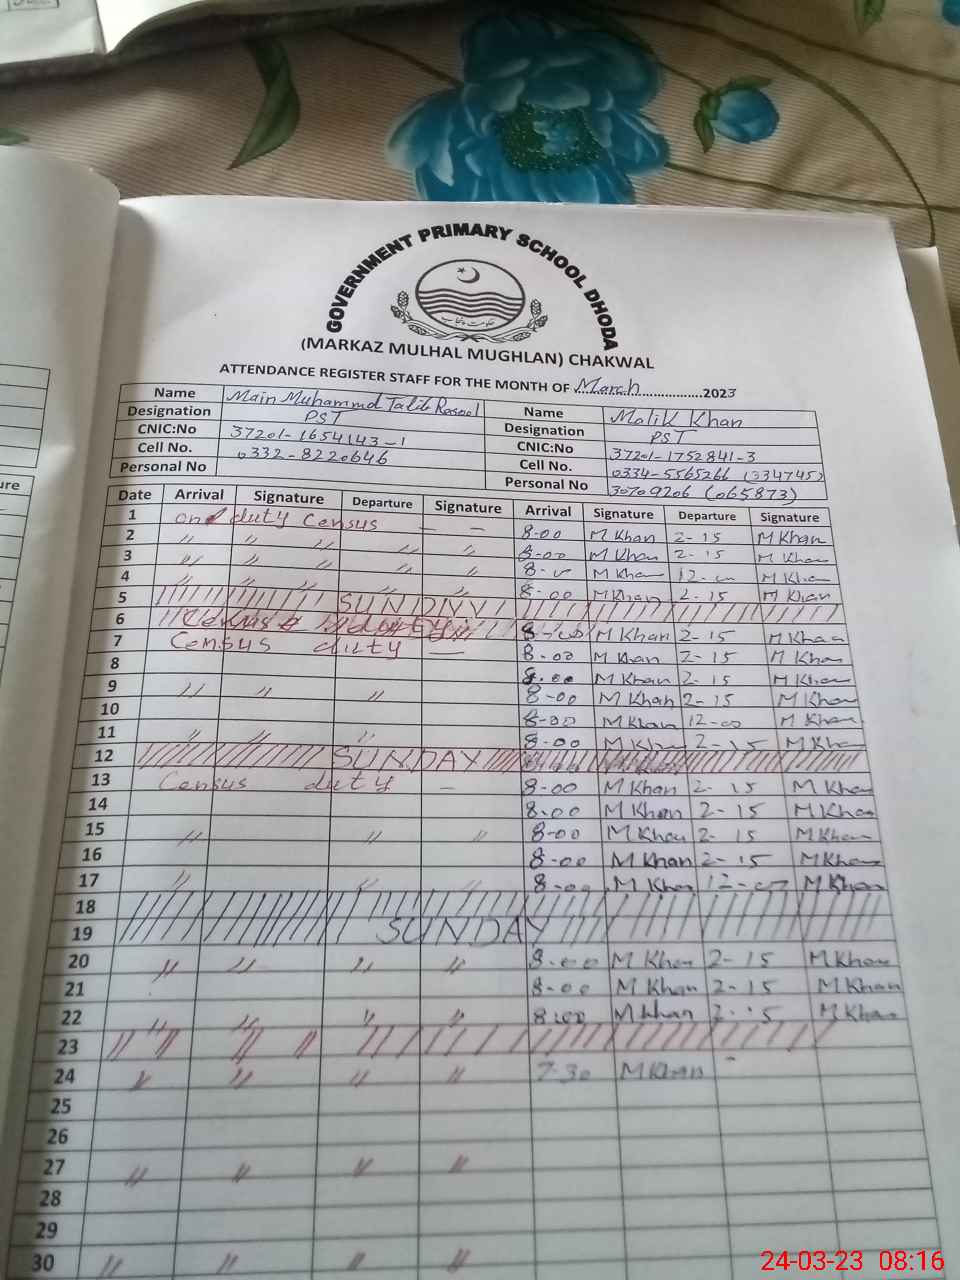 GOVERNMENT PRIMARY SCHOOL DHODA
حکومت پنجاب
(MARKAZ MULHAL MUGHLAN) CHAKWAL
ATTENDANCE REGISTER STAFF FOR THE MONTH OF March 2023
Name Main Muhammd Talib Rasool Name Malik Khan
Designation PST Designation PST
CNIC:No 37201-1654143-1 CNIC:No 37201-1752841-3
Cell No. 0332-8220646 Cell No. 0334-5565266 (334745)
Personal No Personal No 30709206 (065873)
Date Arrival Signature Departure Signature Arrival Signature Departure Signature
1 on duty census — — 8-00 M Khan 2-15 M Khan
2 〃 〃 〃 〃 〃 8-00 M Khan 2-15 M Khan
3 〃 〃 〃 〃 〃 8-00 M Khan 12-00 M Khan
4 〃 〃 〃 〃 〃 8-00 M Khan 2-15 M Khan
5 SUNDAY
6 8-00 M Khan 2-15 M Khan
7 Census duty — 8-00 M Khan 2-15 M Khan
8 8-00 M Khan 2-15 M Khan
9 〃 〃 〃 8-00 M Khan 2-15 M Khan
10 8-00 M Khan 12-00 M Khan
11 〃 〃 〃 8-00 M Khan 2-15 M Khan
12 SUNDAY
13 Census duty — 8-00 M Khan 2-15 M Khan
14 8-00 M Khan 2-15 M Khan
15 〃 〃 〃 8-00 M Khan 2-15 M Khan
16 8-00 M Khan 2-15 M Khan
17 〃 〃 〃 8-00 M Khan 12-00 M Khan
18
19 SUNDAY
20 〃 〃 〃 〃 8-00 M Khan 2-15 M Khan
21 8-00 M Khan 2-15 M Khan
22 〃 〃 〃 〃 8-00 M Khan 2-15 M Khan
23
24 〃 〃 〃 〃 7-30 M Khan
25
26
27 〃 〃 〃 〃
28
29
30 〃 〃 〃 〃
24-03-23 08:16